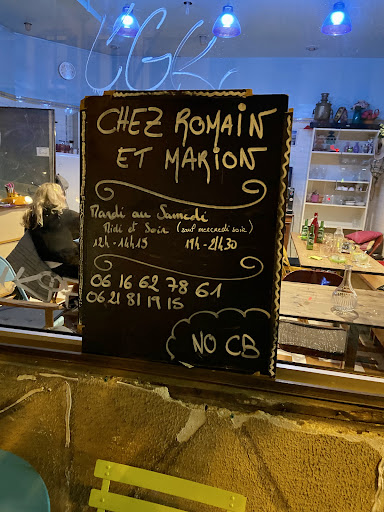 CHEZ ROMAIN
ET MARION
Mardi au Samedi
Midi et Soir (sauf mercredi soir)
12h - 14h15 19h - 21h30
06 16 62 78 61
06 21 81 19 15
NO CB